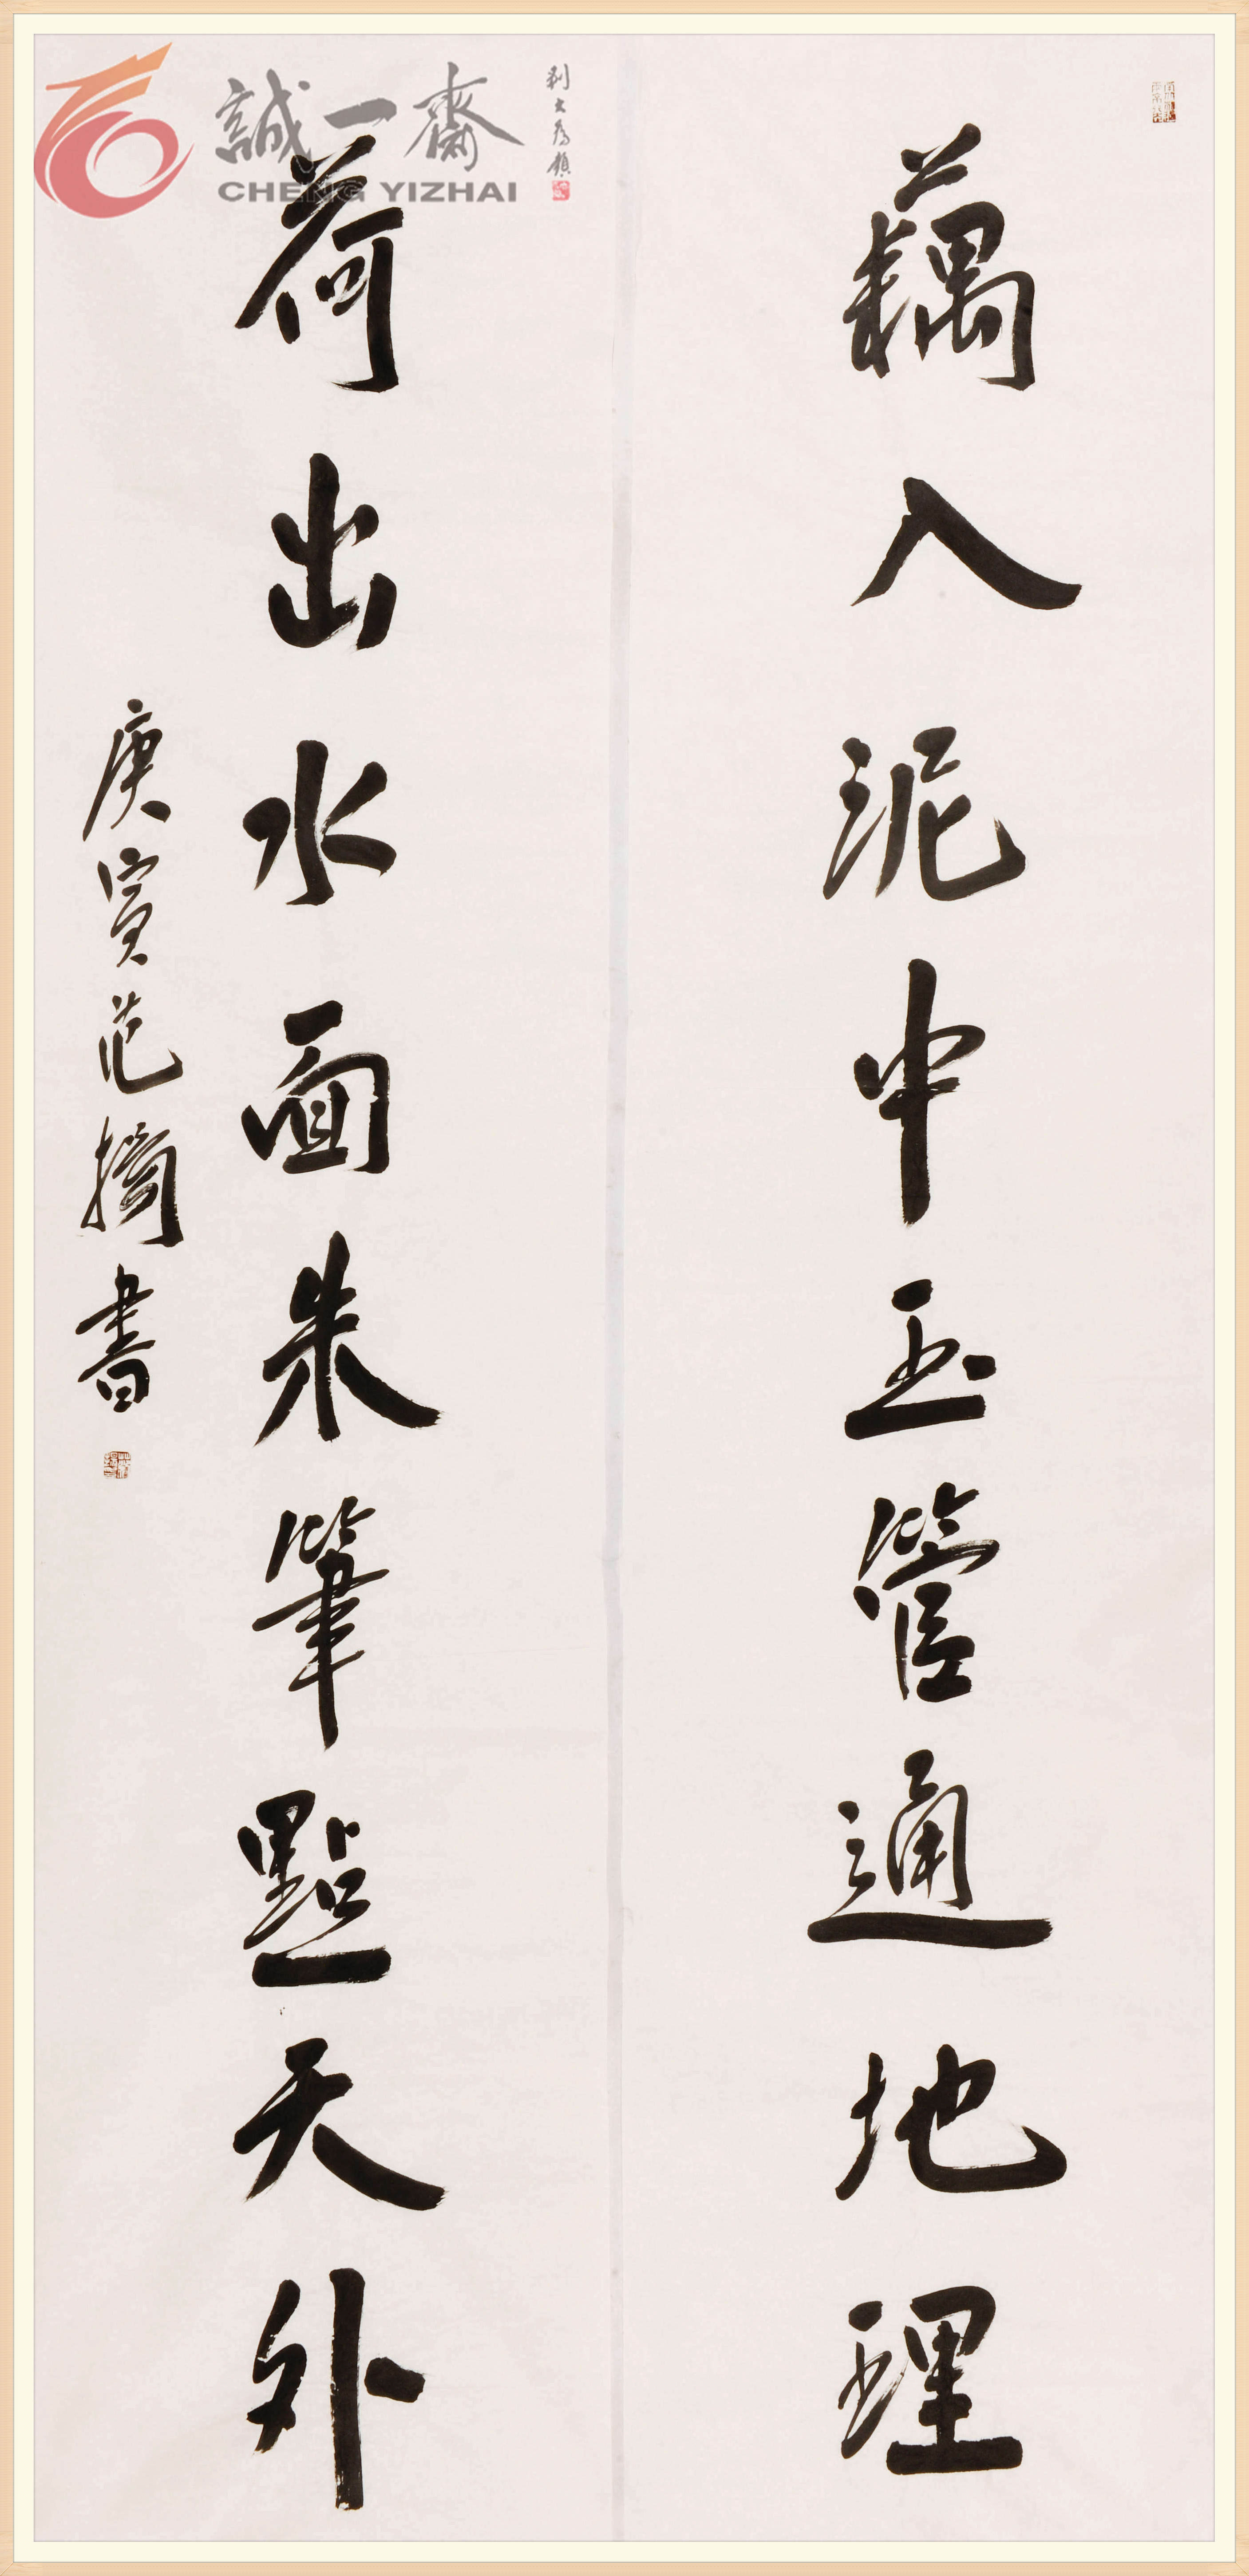 藕入泥中玉管通地理
荷出水面朱筆點天外
庚寅范揚書
誠一齋
CHENG YIZHAI